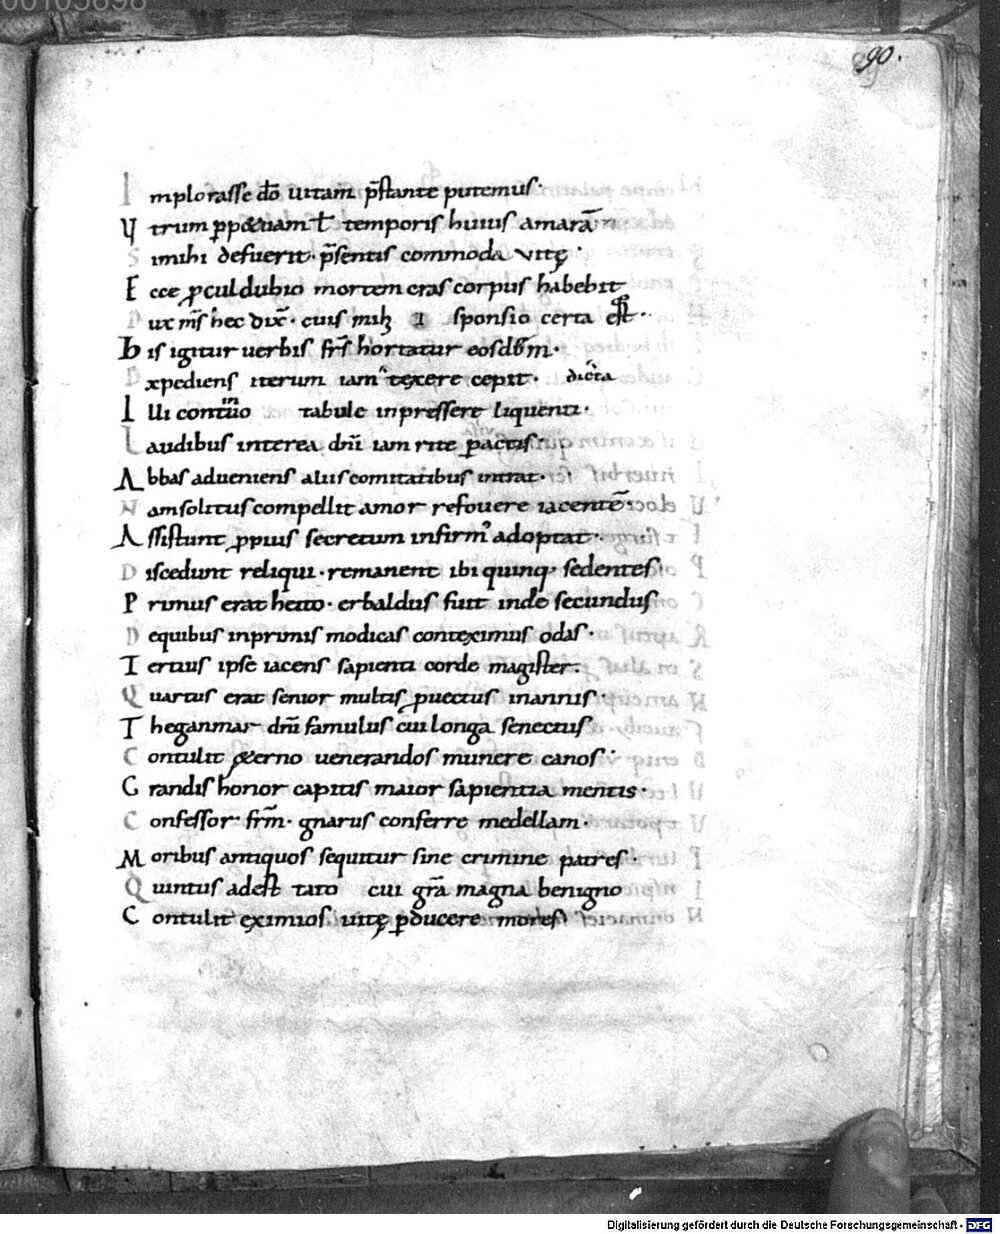 00105898
90.
I mplorasse dō uitam p̄stante putemus·
V trum ꝑpetuam ł temporis huius amarā
S imihi defuerit· p̄sentis commoda vitę·
E cce ꝓculdubio mortem cras corpus habebit
D ux m̄s hec dix̄· cuis mihi sponsio certa est··
H is igitur uerbis frs̄ hortatur eosdem·
E xpediens iterum iam texere cepit· dicta
I lli contīuo tabule inpressere liquenti·
L audibus interea dn̄i iam rite ꝑactis·
A bbas adueniens aliis comitatibus intrat·
N am solitus compellit amor refouere iacentē
A ssistunt ꝓpius secretum infirmꝰ adoptat·
D iscedunt reliqui· remanent ibi quinq; sedentes·
P rimus erat heito· erbaldus fuit inde secundus
D equibus inprimis modicas conteximus odas·
T ertius ipse iacens sapienti corde magister·
Q uartus erat senior multis ꝓuectus inannis·
T heganmar dn̄i famulus cui longa senectus
C ontulit ꝗterno uenerandos munere canos·
G randis honor capitis maior sapientia mentis·
C onfessor frm̄· gnarus conferre medellam·
M oribus antiquos sequitur sine crimine patres·
Q uintus adest tato cui gr̄a magna benigno
C ontulit eximios uitę ꝓducere mores
Digitalisierung gefördert durch die Deutsche Forschungsgemeinschaft - DFG